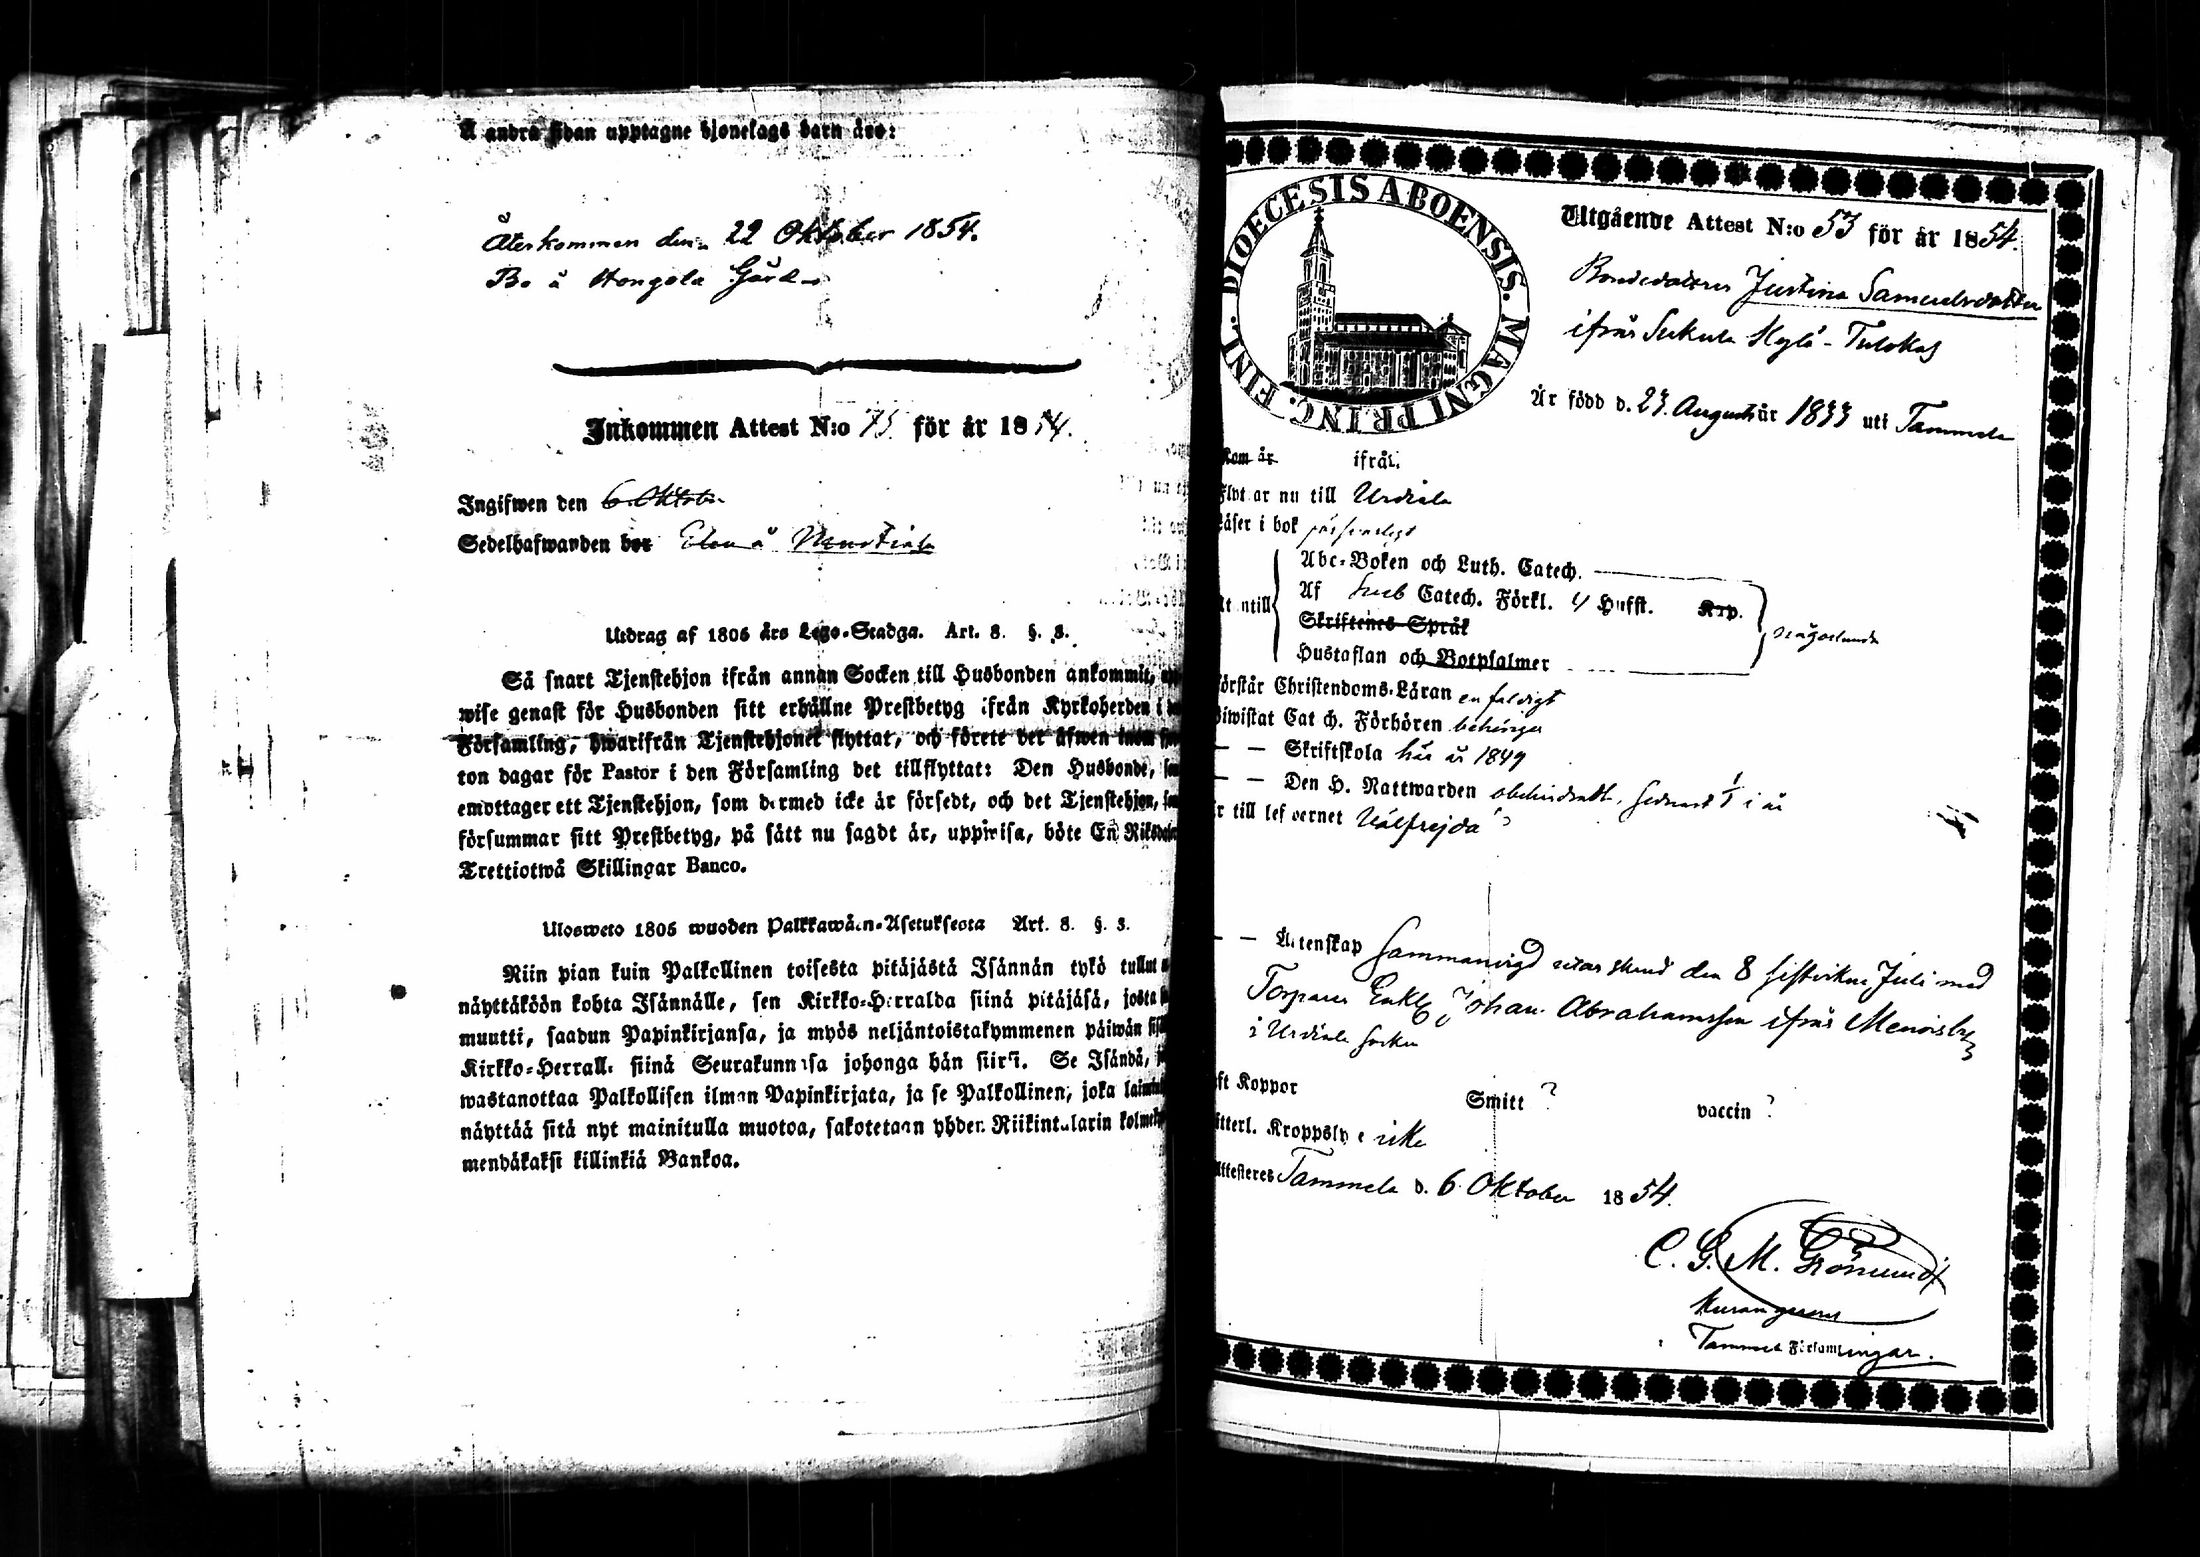 Å andra sidan upptagne hjonelags barn äro:
Återkommen den 22 Oktober 1854.
Bo å Hongola Gård
Inkommen Attest N:o 75 för år 1854.
Ingifwen den 6 Oktob.
Sedelhafwanden bor
Utdrag af 1805 års Lego-Stadga. Art. 8. §. 3.
Så snart Tjenstehjon ifrån annan Socken till Husbonden ankommit,
wise genast för Husbonden sitt erhållne Prestbetyg ifrån Kyrkoherden i
Församling, hwarifrån Tjenstehjonet flyttat, och förete det äfwen inom
ton dagar för Pastor i den Församling det tillflyttat: Den Husbonde,
emottager ett Tjenstehjon, som dermed icke är försedt, och det Tjenstehjon,
försummar sitt Prestbetyg, på sätt nu sagdt är, uppwisa, böte En Riksdaler
Trettiotwå Skillingar Banco.
Ulosweto 1805 wuoden Palkkawäen-Asetuksesta Art. 8. §. 3.
Niin pian kuin Palkollinen toisesta pitäjästä Isännän tykö tullut
näyttäköön kohta Isännälle, sen Kirkko-Herralda siinä pitäjäsä, josta
muutti, saadun Papinkirjansa, ja myös neljäntoistakymmenen päiwän
Kirkko-Herrall. siinä Seurakunnasa johonga hän siirti. Se Isändä,
wastanottaa Palkollisen ilman Papinkirjata, ja se Palkollinen, joka
näyttää sitä nyt mainitulla muotoa, sakotetaan yhden Riikintalarin
mendäkaksi killinkiä Bankoa.
DIOECESIS ABOENSIS. MAGNI PRINC. FINL.
Utgående Attest N:o 53 för år 1854.
Bondedottren Justina Samuelsdotter
ifrån Sukula Kylä-Tulokas
Är född d. 23 Augusti år 1833 uti Tammela
Kom år ifrån
Flyttar nu till Urdiala
Läser i bok försvarligt
Utantill
Abc-Boken och Luth. Catech.
Af Sveb Catech. Förkl. 4 Hufst. Krp.
Skriftenes Språk
Hustaflan och Botpsalmer
någorlunda
Förstår Christendoms-Läran enfaldigt
Biwistat Catech. Förhören behörigen
— — Skriftskola här år 1849
— — Den H. Nattwarden obehindradt, senast 1/1 i år
Är till lefwernet Välfrejdad
— — Äktenskap Sammanvigd den 8 sistvikne Juli med
Torparen Enkl. Johan Abrahamsson ifrån Menoisby
i Urdiala Socken
Haft Koppor Smitt ? vaccin ?
Kroppslyte icke
Attesteres Tammela d. 6 Oktober 1854.
C. G. M. Grönlund
Tammela Församlingar.